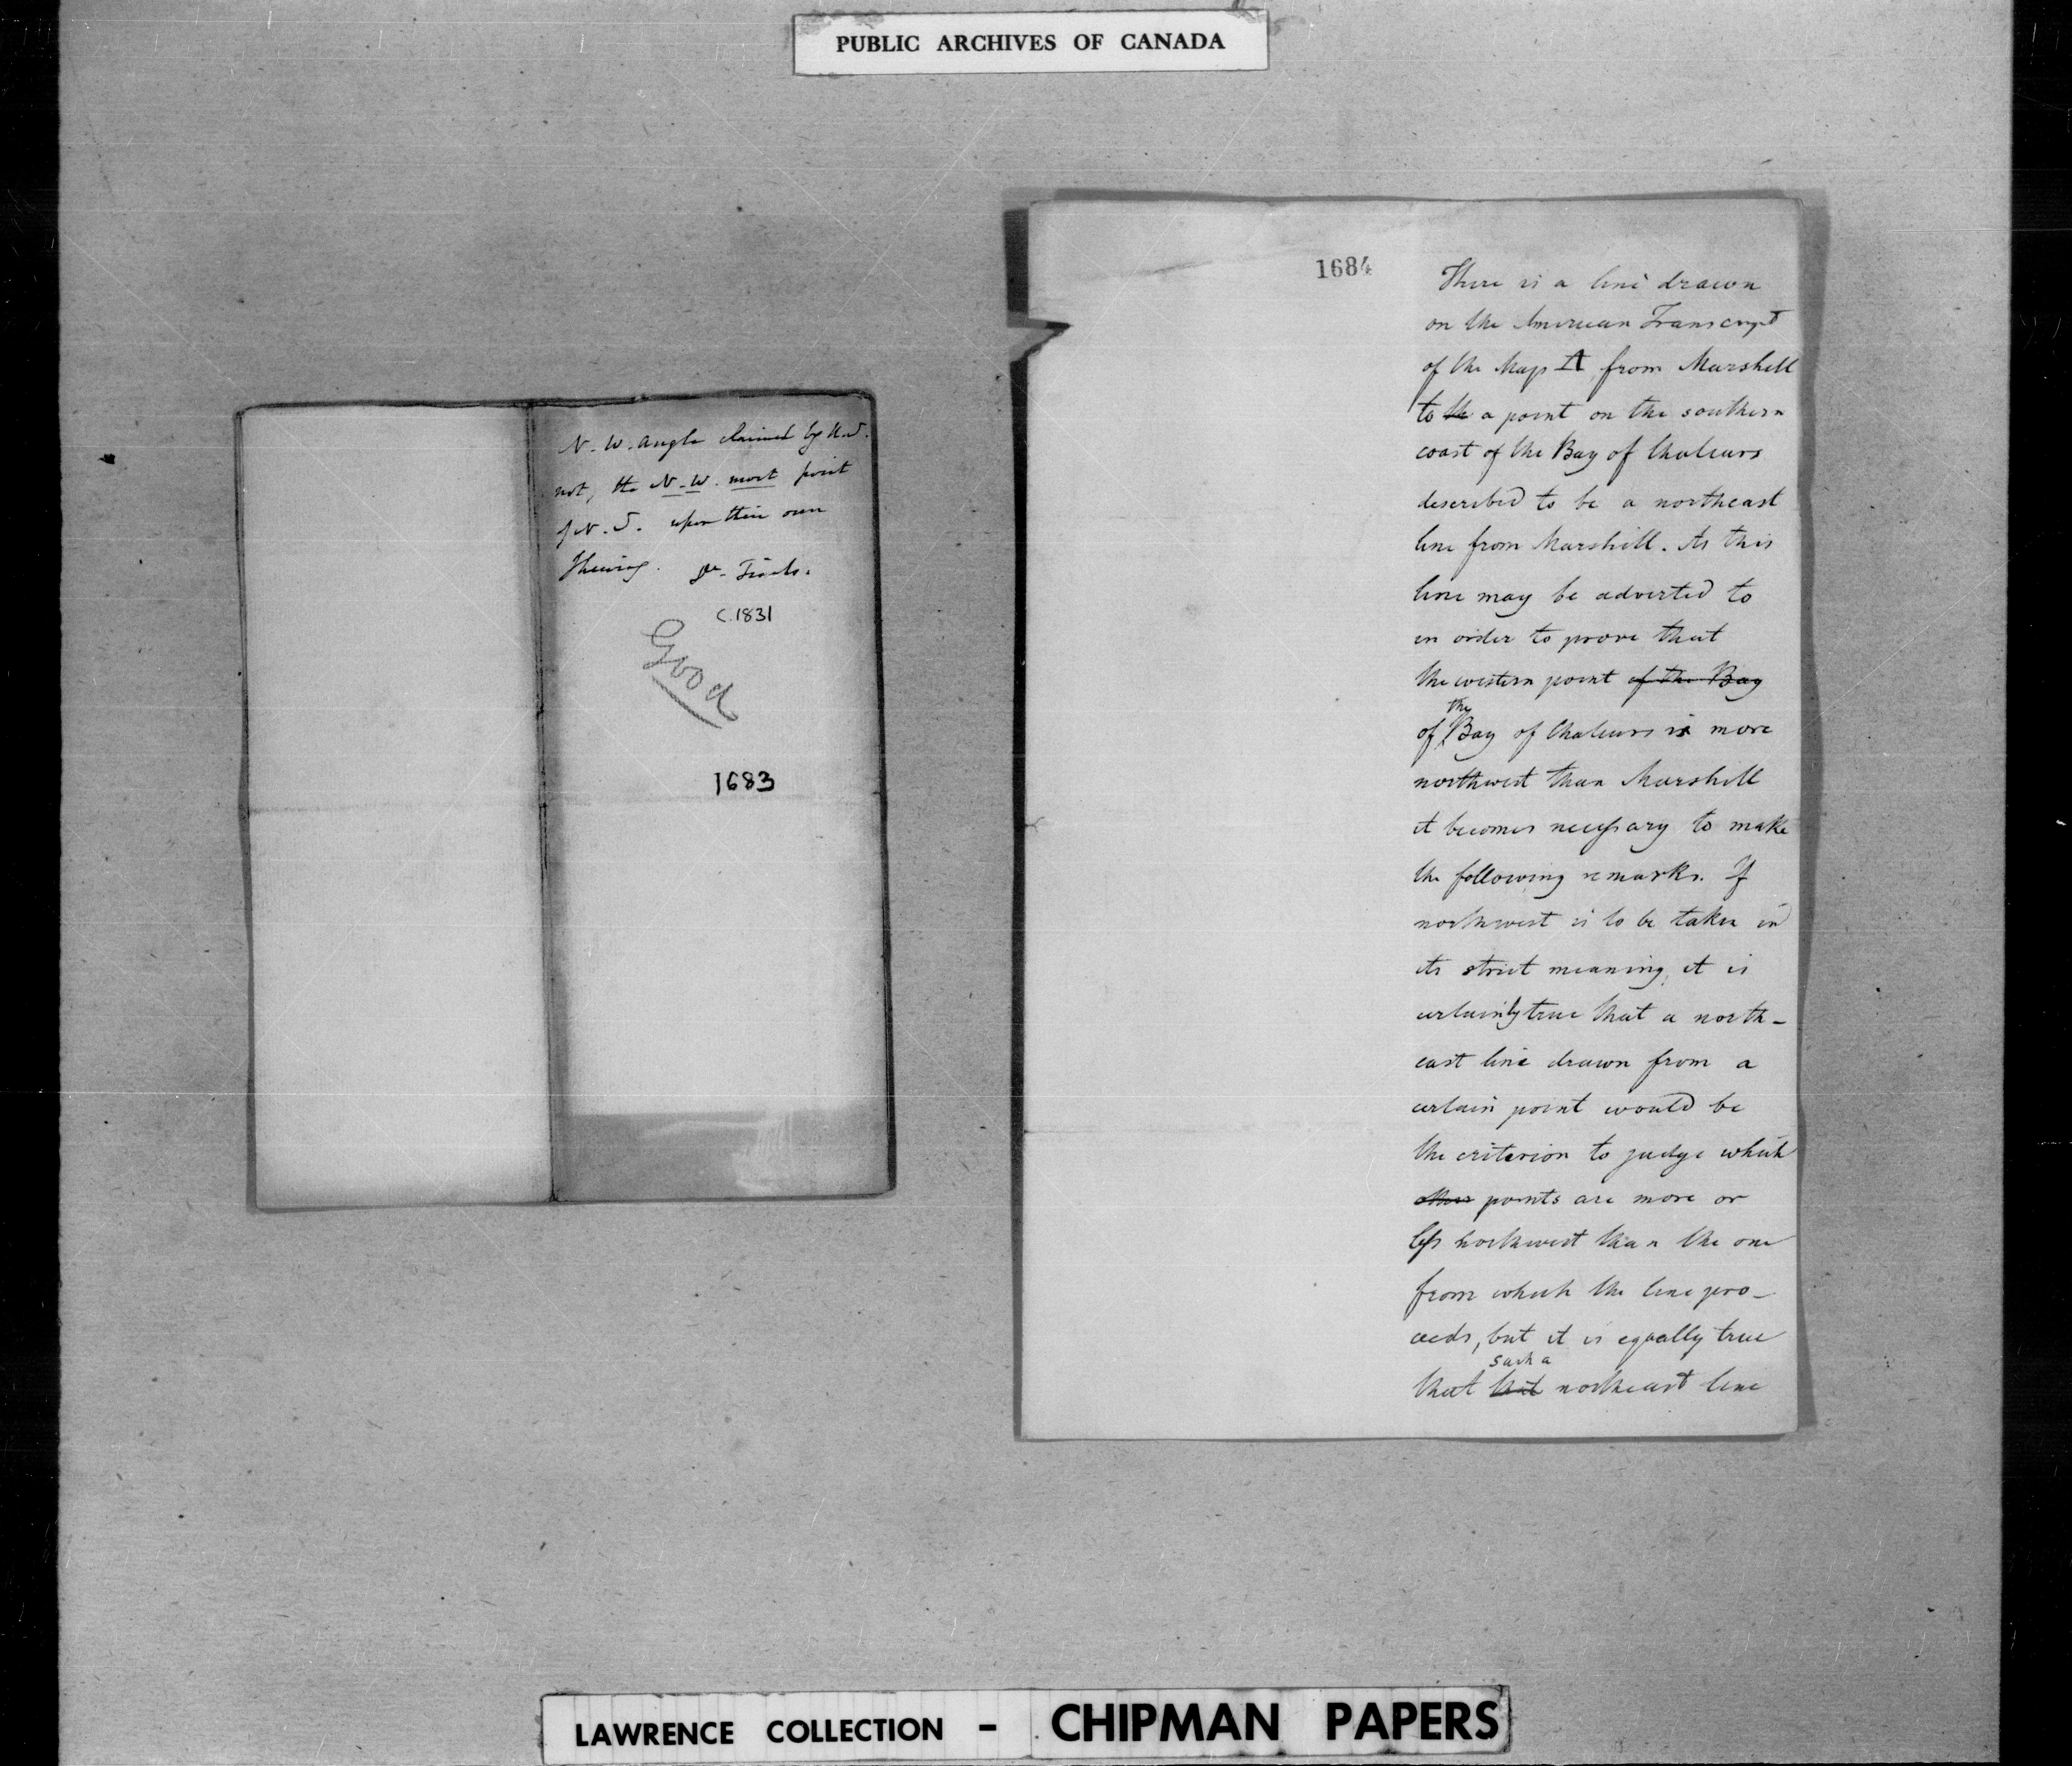 PUBLIC ARCHIVES OF CANADA
N. W. angle claimed by U.S.
not, the N. W. most point
of N. S. upon their own
Shewing. Dr. Tiarks.
C. 1831
Good
1683
1684
There is a line drawn
on the American Transcript
of the Map A, from Marshill
to the a point on the southern
coast of the Bay of Chaleurs
described to be a northeast
line from Marshill. As this
line may be adverted to
in order to prove that
the western point of the Bay
the
of Bay of Chaleurs is more
northwest than Marshill
it becomes necessary to make
the following remarks. If
northwest is to be taken in
its strict meaning, it is
certainly true that a north-
east line drawn from a
certain point would be
the criterion to judge which
other points are more or
less northwest than the one
from which the line pro-
ceeds, but it is equally true
such a
that that northeast line
LAWRENCE COLLECTION - CHIPMAN PAPERS